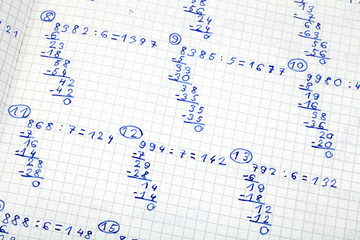 -56
24
-24
0
13
-7
68
-63
56
-56
0
8
8382 : 6 = 1397
-6
23
-18
58
-54
42
-42
0
9
8385 : 5 = 1677
-5
33
-30
38
-35
35
-35
0
10
9980 : 4
-8
19
-16
38
-36
20
-20
0
11
868 : 7 = 124
-7
16
-14
28
-28
0
12
994 : 7 = 142
-7
29
-28
14
-14
0
13
792 : 6 = 132
-6
19
-18
12
-12
0
888 : 6 = 148
15